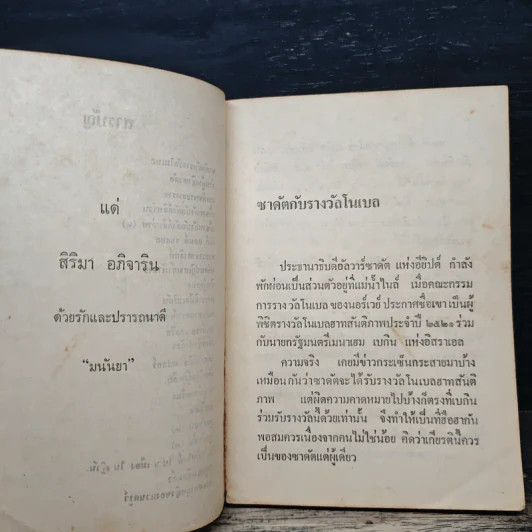 แด่
สิริมา อภิจาริน
ด้วยรักและปรารถนาดี
“มนันยา”
ซาดัตกับรางวัลโนเบล
ประธานาธิบดีอัลวาร์ซาดัต แห่งอียิปต์ กำลัง
พักผ่อนเป็นส่วนตัวอยู่ที่แม่น้ำไนล์ เมื่อคณะกรรม
การรางวัลโนเบลของนอร์เวย์ ประกาศชื่อเขาเป็นผู้
พิชิตรางวัลโนเบลฮาทสันติภาพประจำปี ๒๕๒๑ ร่วม
กับนายกรัฐมนตรีเมนาเฮม เบกิน แห่งอิสราเอล
ความจริง เคยมีข่าวกระเซ็นกระสายมาบ้าง
เหมือนกันว่าซาดัตจะได้รับรางวัลโนเบลฮาทสันติ
ภาพ แต่ผิดความคาดหมายไปบ้างก็ตรงที่เบกิน
ร่วมรับรางวัลนี้ด้วยเท่านั้น จึงทำให้เป็นที่ฮือฮากัน
พอสมควรเนื่องจากคนไม่ใช่น้อย คิดว่าเกียรตินี้ควร
เป็นของซาดัตแต่ผู้เดียว